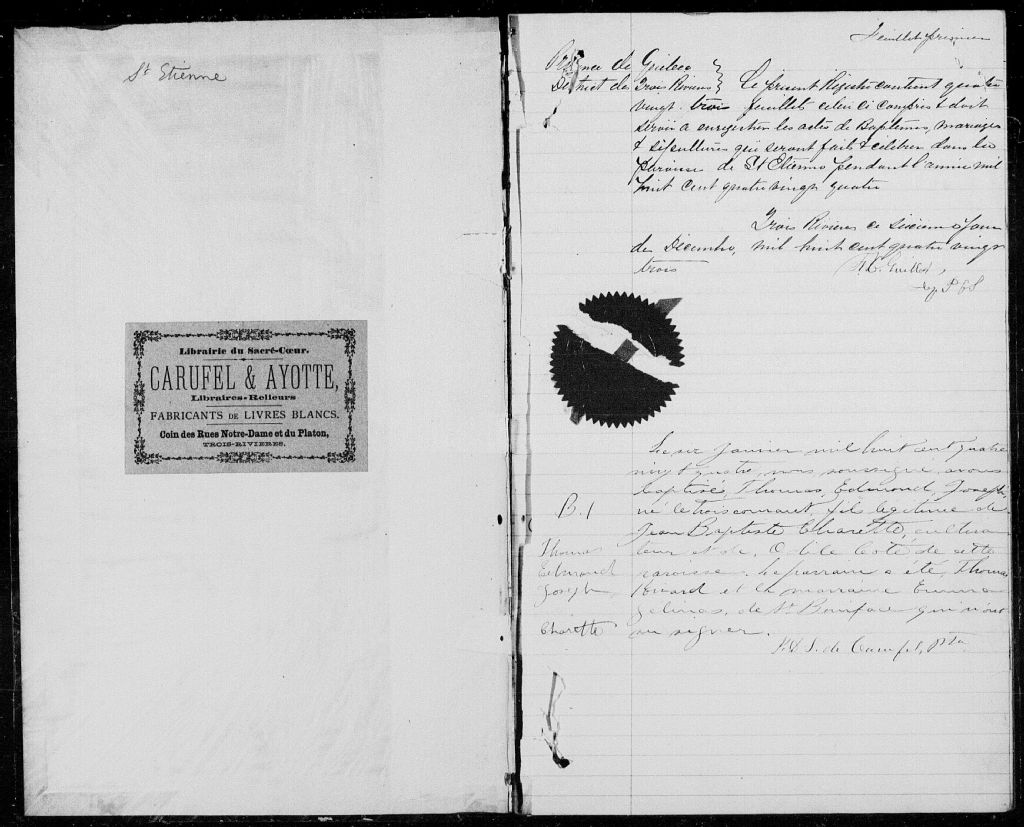 St Etienne
Librairie du Sacré-Cœur.
CARUFEL & AYOTTE,
Libraires-Relieurs
FABRICANTS DE LIVRES BLANCS.
Coin des Rues Notre-Dame et du Platon,
TROIS-RIVIERES.
Feuillet premier
Province de Québec
District des Trois Rivières } Le présent Régistre contient quatre
vingt trois feuillets celui ci compris & doit
servir a enregistrer les actes de Baptêmes, mariages
& sépultures qui seront faits & célébrer dans la
paroisse de St Etienne pendant l'année mil
huit cent quatre vingt quatre
Trois Rivières ce sixième jour
de Décembre, mil huit cent quatre vingt
trois
Guillet
Dep P C S
Le six janvier mil huit cent quatre
vingt quatre, nous soussigné avons
baptisé Thomas, Edmond, Joseph
B. 1
né le trois courant, fils légitime de
Jean Baptiste Charette, cultiva
Thomas
teur et de Odile Coté de cette
Edmond
paroisse. Le parrain a été, Thomas
Joseph
et la marraine Emma
Gelinas, de St Boniface qui n'ont
Charette
su signer.
de Carufel, Ptre